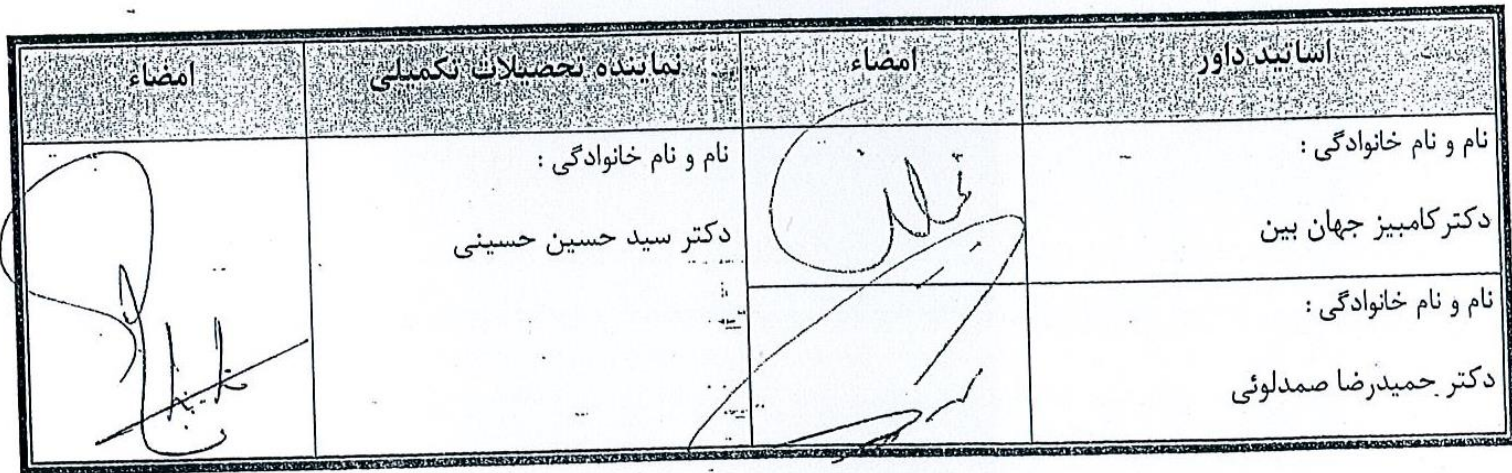 اساتید داور
امضاء
نماینده تحصیلات تکمیلی
امضاء
نام و نام خانوادگی :
دکتر کامبیز جهان بین
نام و نام خانوادگی :
دکتر حمیدرضا صمدلوئی
نام و نام خانوادگی :
دکتر سید حسین حسینی